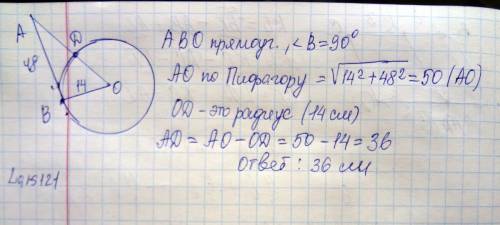 A
D
48
14
O
B
Lais121
ABO прямоуг., <B=90°
AO по Пифагору = √14²+48² = 50 (AO)
OD - это радиус (14 см)
AD = AO - OD = 50 - 14 = 36
Ответ: 36 см